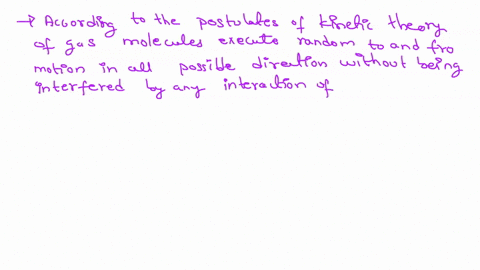 → According to the postulates of kinetic theory
of gas molecules execute random to and fro
motion in all possible direction without being
interfered by any interaction of